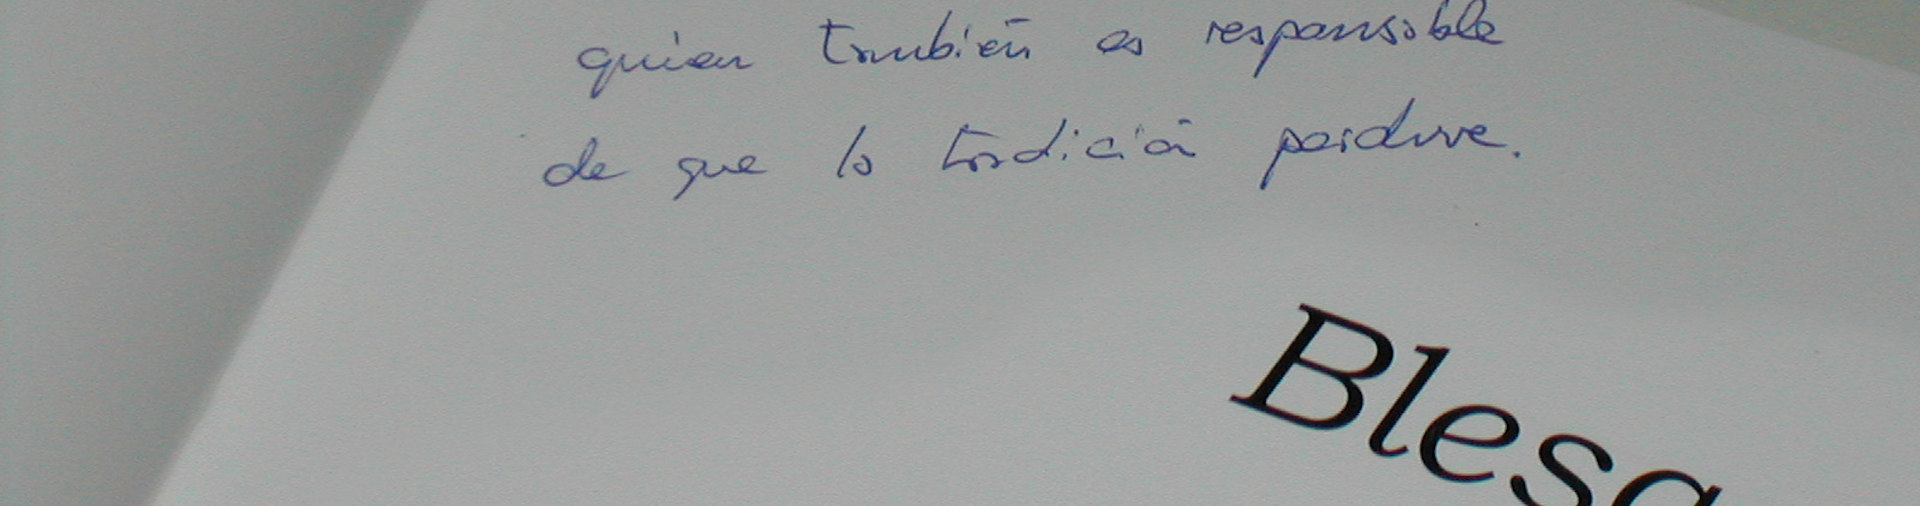 quien también es responsable
de que la tradición perdure.
Blesa